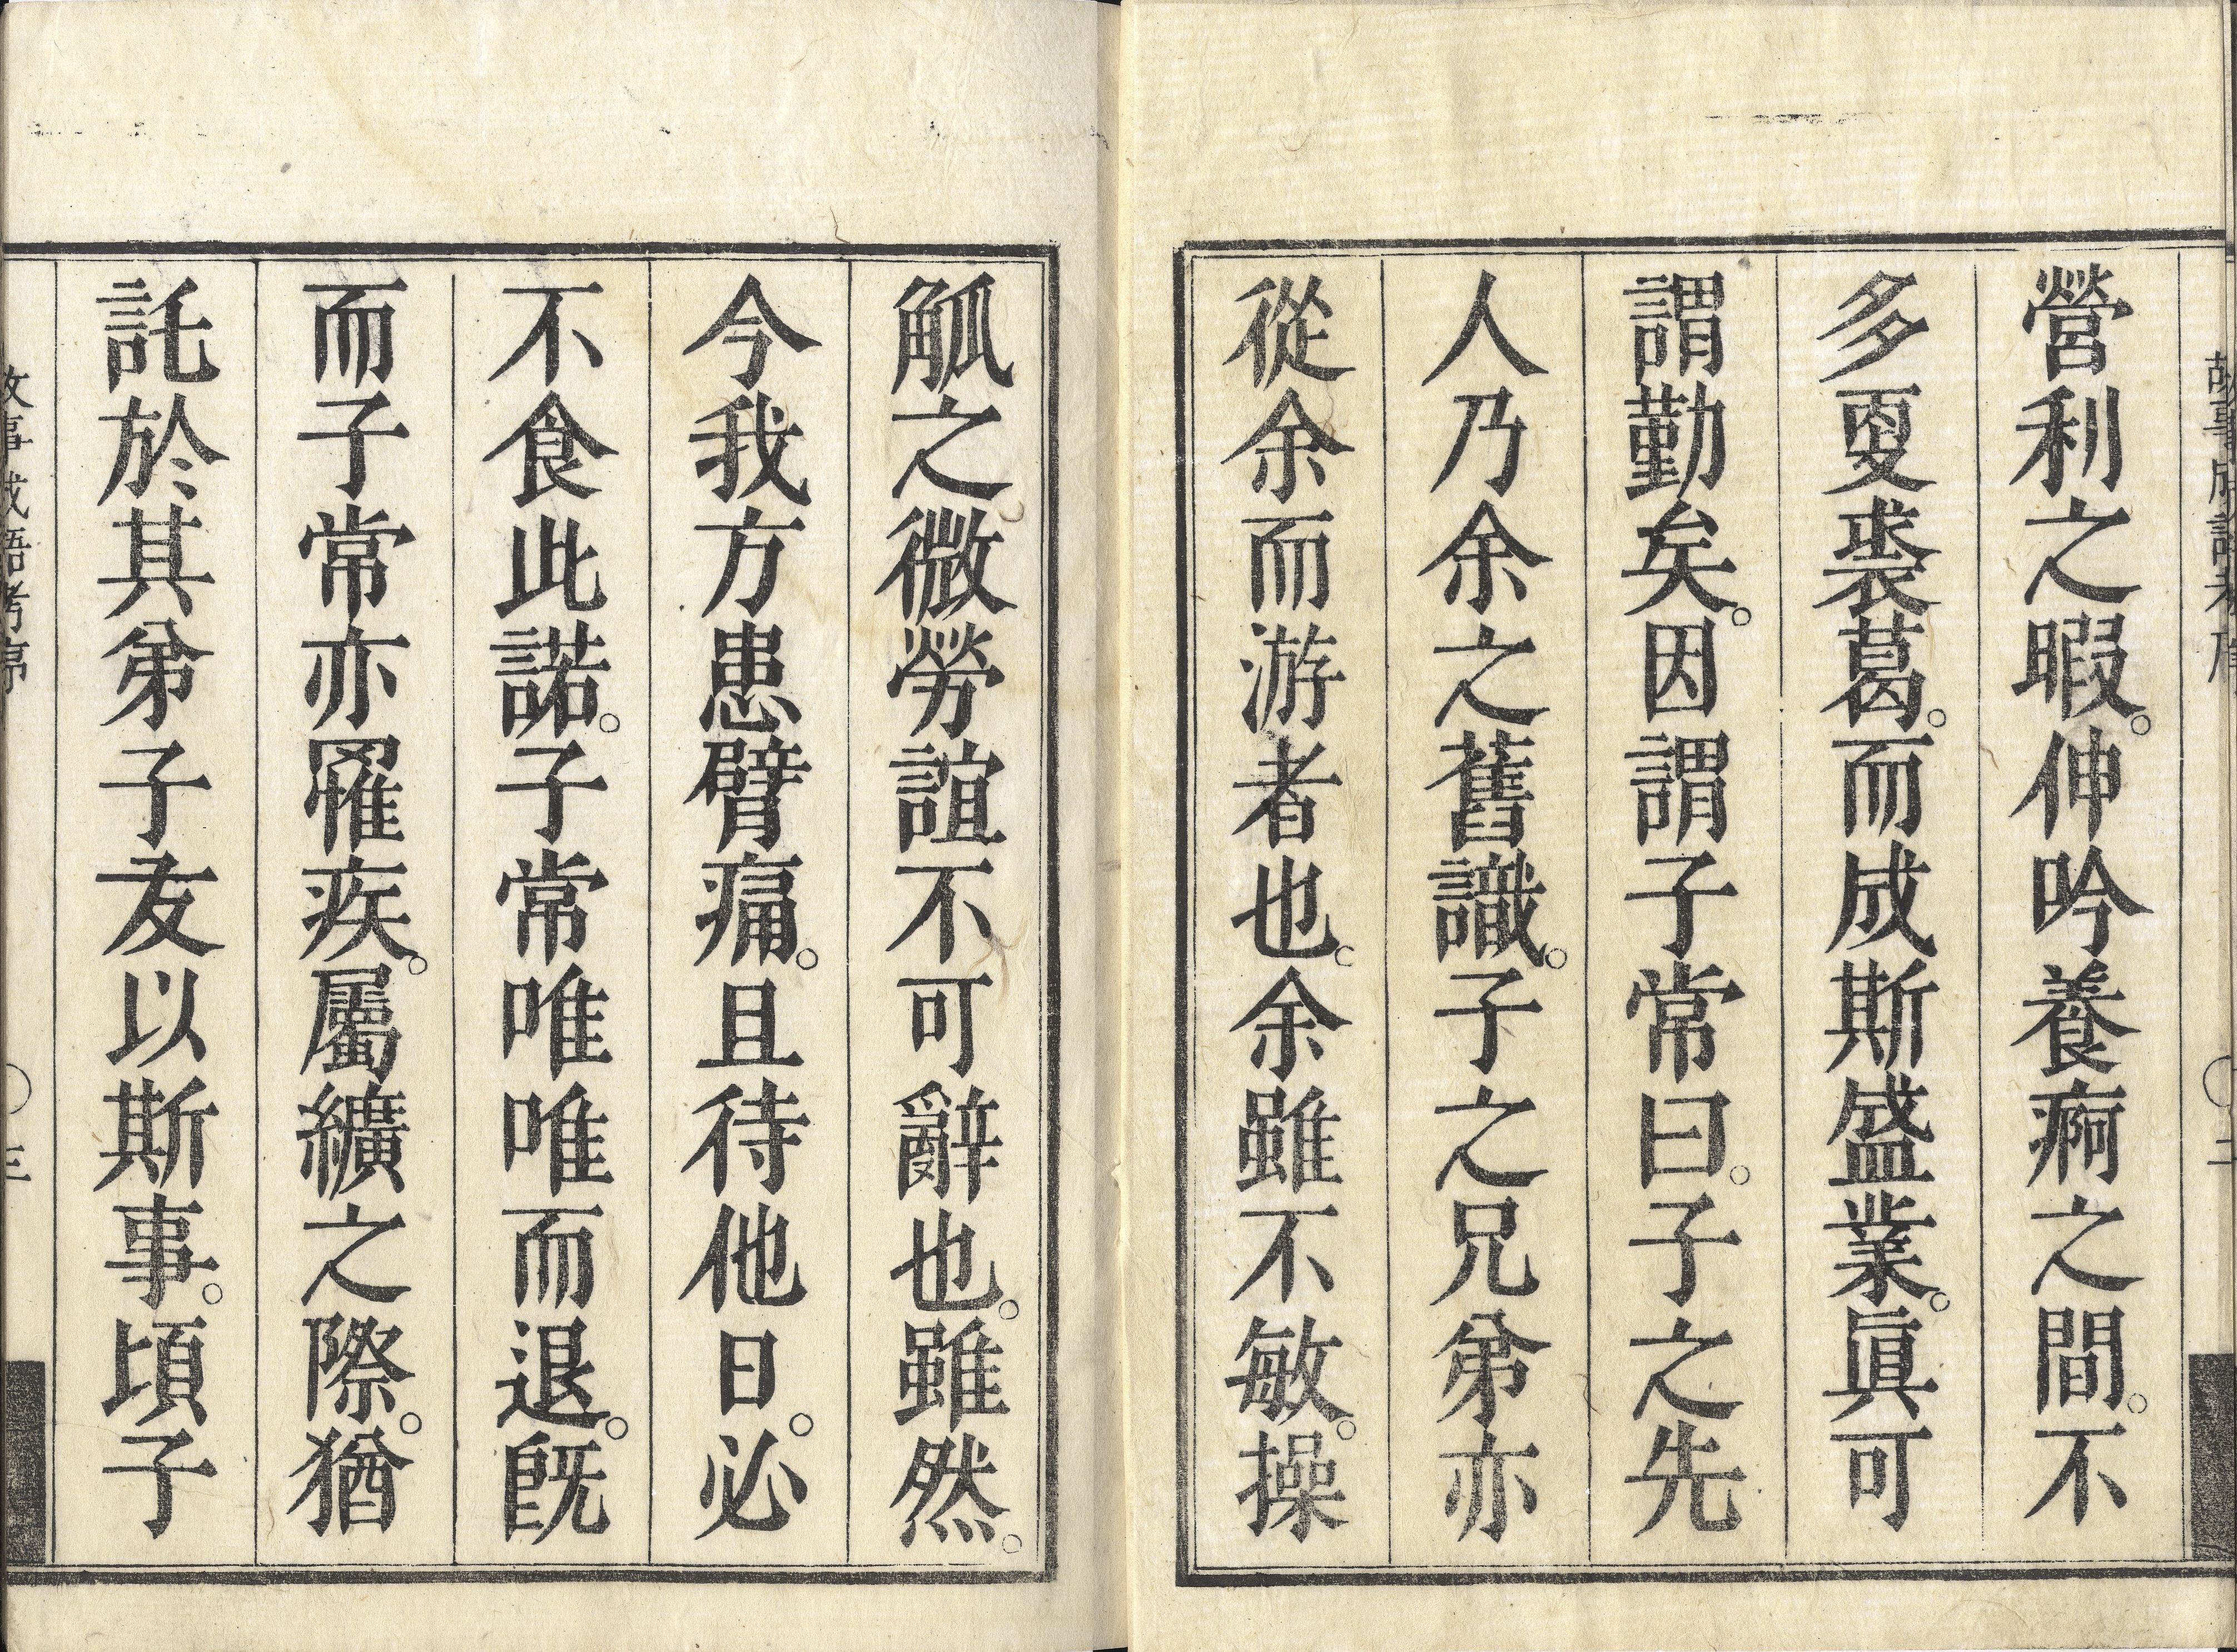 營利之暇。伸吟養痾之間。不
多更裘葛。而成斯盛業。眞可
謂勤矣。因謂子常曰。子之先
人乃余之舊識。子之兄弟亦
從余而游者也。余雖不敏。操
觚之微勞誼不可辭也。雖然。
今我方患臂痛。且待他日。必
不食此諾。子常唯唯而退。既
而子常亦罹疾。屬纊之際。猶
託於其弟子友以斯事。頃子
故事成語考序
三